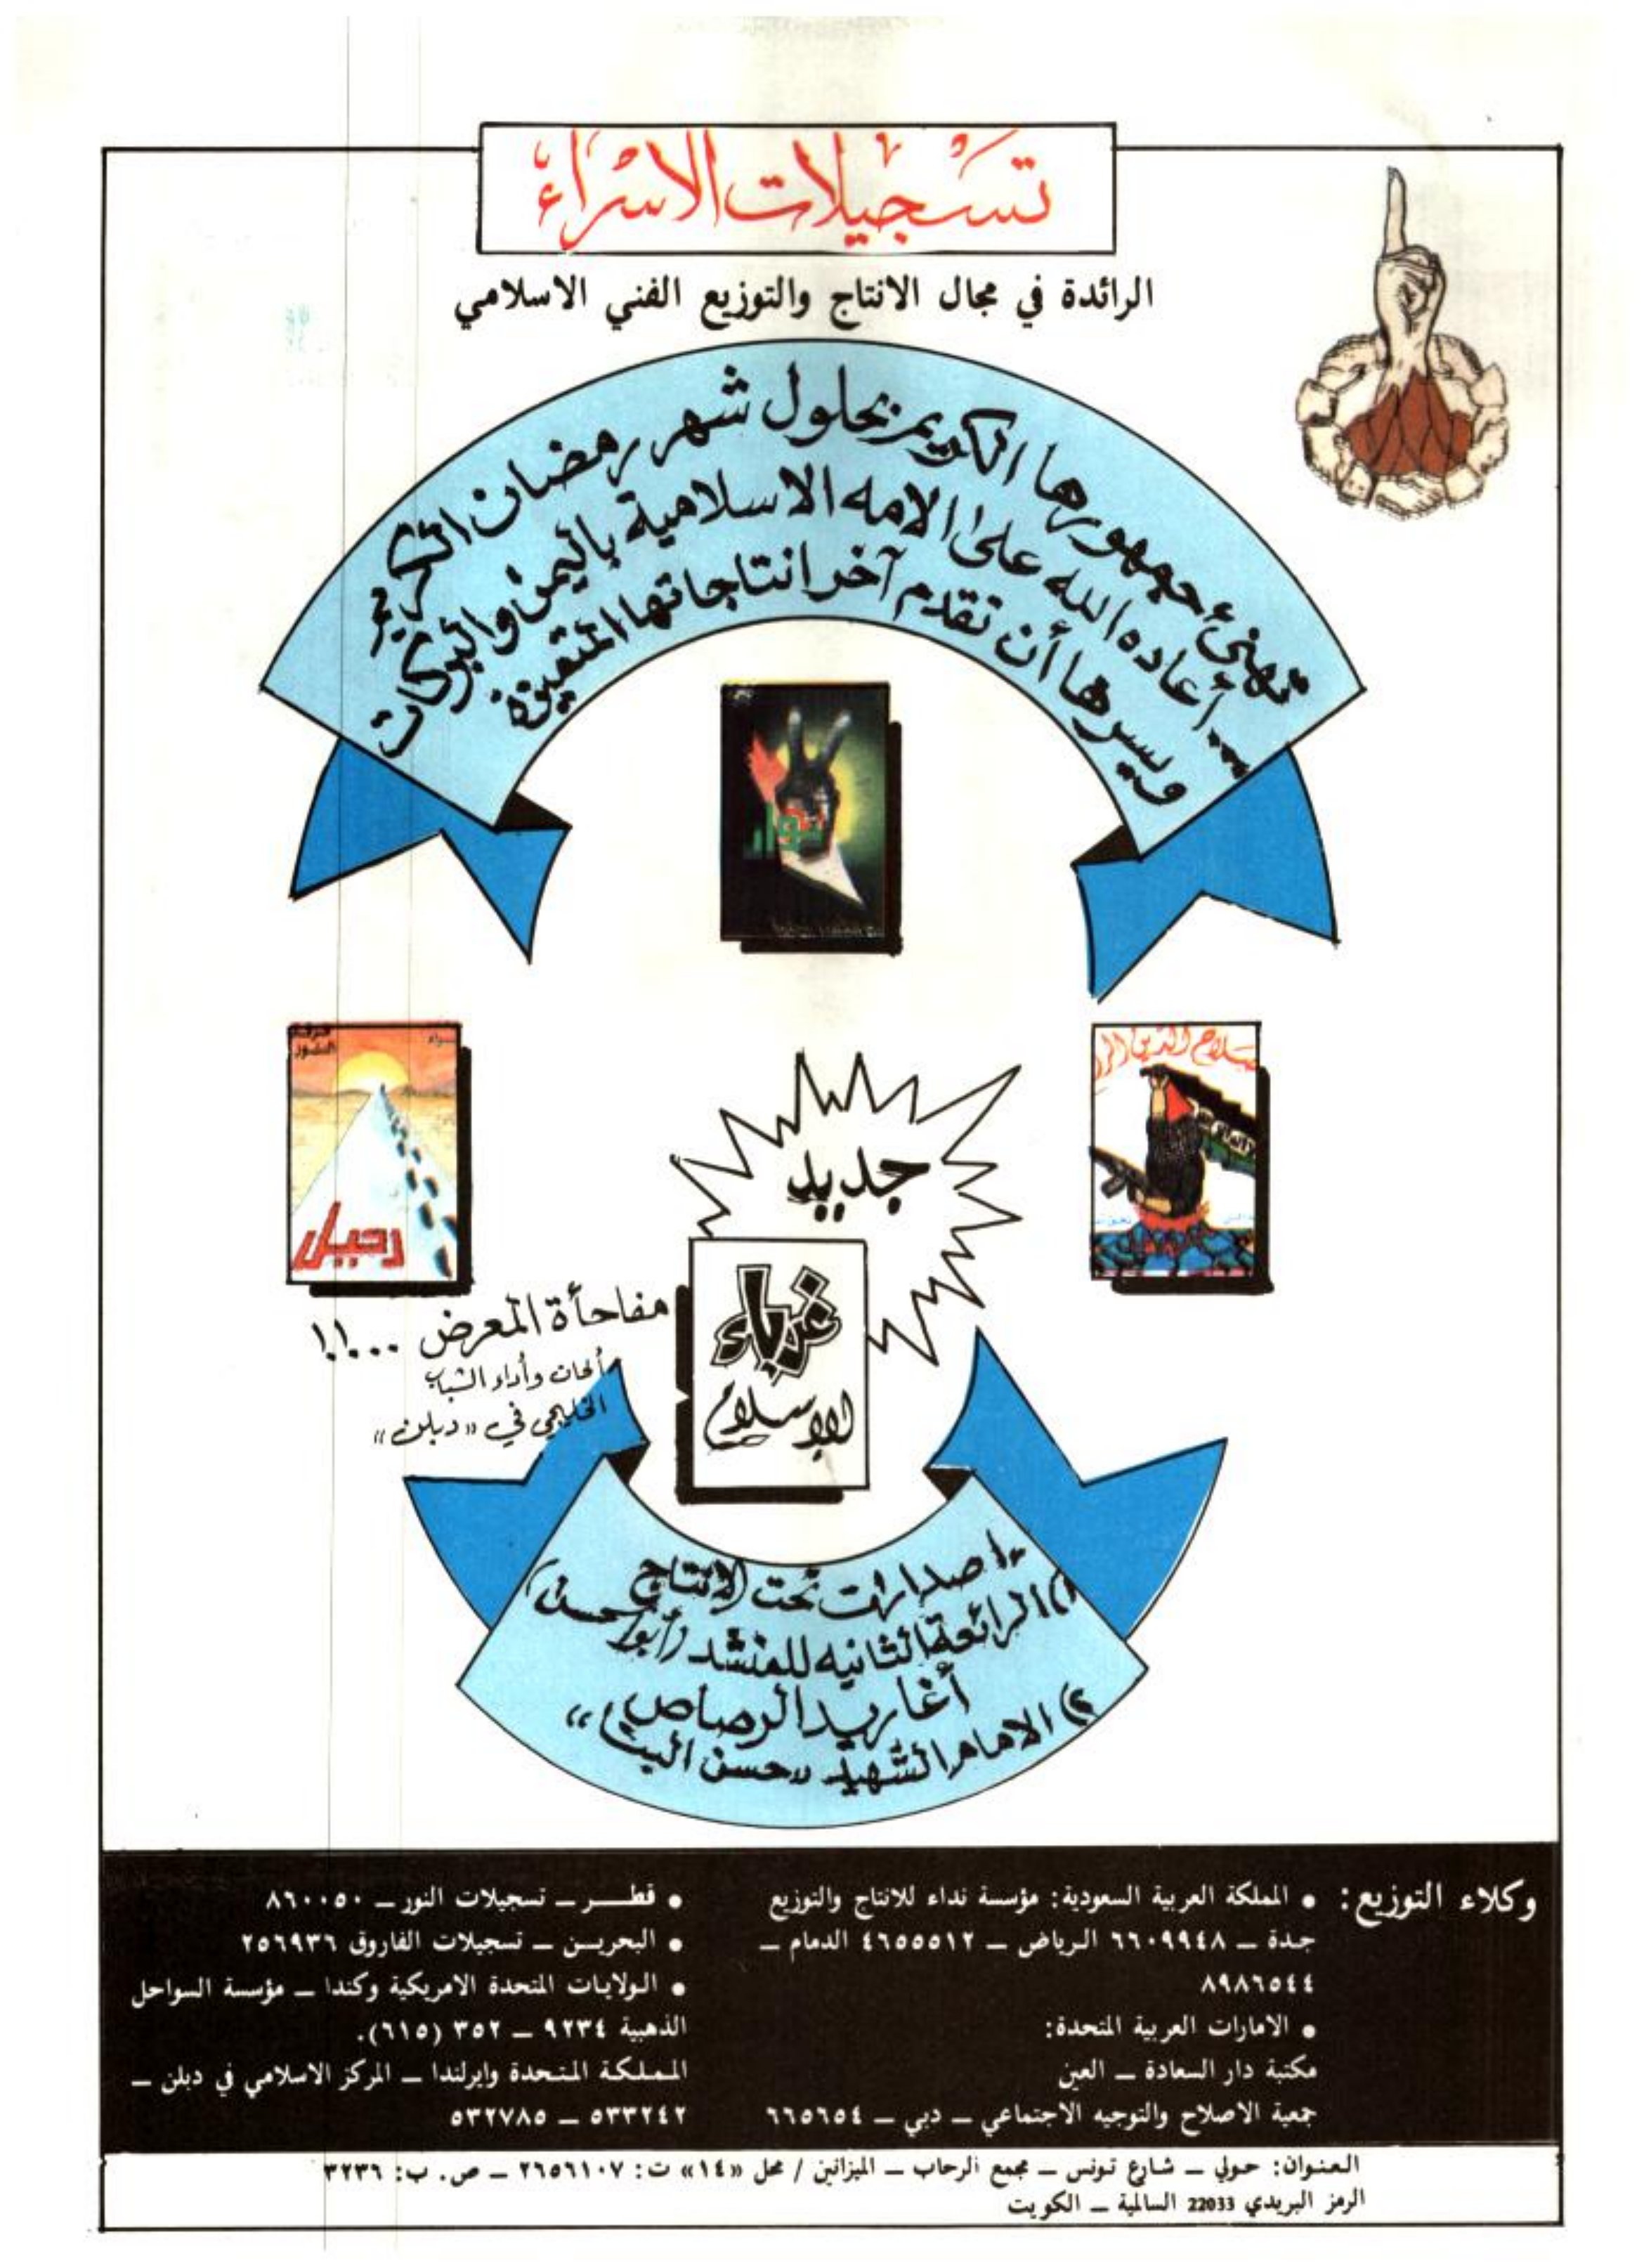 تسجيلات الاسراء
الرائدة في مجال الانتاج والتوزيع الفني الاسلامي
تهنئ جمهورها الكريم بحلول شهر رمضان الكريم
... أعاده الله على الامه الاسلامية باليمن والبركات
ويسرها أن تقدم آخر انتاجاتها المتميزة
صلاح الدين
النور
رحيل
جديد
غرباء
الإسلام
مفاجأة المعرض ...!!
ألحان وأداء الشباب
الخليجي في «دبلن»
* اصدارات تحت الإنتاج
١) الرائعة الثانيه للمنشد (أبو الحسن)
أغاريد الرصاص
٢) الامام الشهيد «حسن البنا»
وكلاء التوزيع:
● المملكة العربية السعودية: مؤسسة نداء للانتاج والتوزيع
جدة ــ ٦٦٠٩٩٤٨ الرياض ــ ٤٦٥٥٥١٢ الدمام ــ
٨٩٨٦٥٤٤
● الامارات العربية المتحدة:
مكتبة دار السعادة ــ العين
جمعية الاصلاح والتوجيه الاجتماعي ــ دبي ــ ٦٦٥٦٥٤
● قطــر ــ تسجيلات النور ــ ٨٦٠٠٥٠
● البحريـن ــ تسجيلات الفاروق ٢٥٦٩٣٦
● الولايات المتحدة الامريكية وكندا ــ مؤسسة السواحل
الذهبية ٩٢٣٤ ــ ٣٥٢ (٦١٥).
المملكة المتحدة وايرلندا ــ المركز الاسلامي في دبلن ــ
٥٣٣٢٤٢ ــ ٥٣٢٧٨٥
العنوان: حولي ــ شارع تونس ــ مجمع الرحاب ــ الميزانين / محل «١٤» ت: ٢٦٥٦١٠٧ ــ ص. ب: ٣٢٣٦
الرمز البريدي 22033 السالمية ــ الكويت